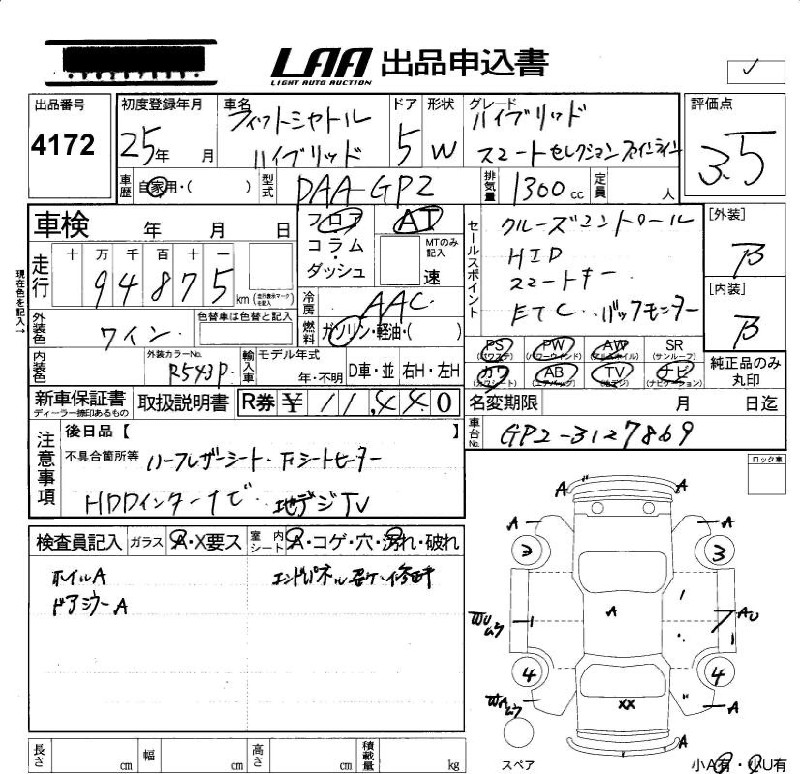 LAA 出品申込書
LIGHT AUTO AUCTION
レ
出品番号
4172
初度登録年月
25年 月
車名
フィットシャトル
ハイブリッド
ドア
5
形状
W
グレード
ハイブリッド
スマートセレクションファインライン
評価点
3.5
車歴
自家用・( )
型式
DAA-GP2
排気量
1300cc
定員
人
車検 年 月 日
フロア
コラム・
ダッシュ
AT
MTのみ記入
速
セールスポイント
クルーズコントロール
HID
スマートキー
ETC. バックモニター
[外装]
B
[内装]
B
現在色を記入→
走行
十 万 千 百 十 一
94875
km
(走行表示マークを記入)
冷房
AAC
燃料
ガソリン・軽油・( )
外装色
ワイン
色替車は色替と記入
内装色
外装カラーNo.
R543P
輸入車
モデル年式
年・不明
D車・並
右H・左H
PS
(パワステ)
PW
(パワーウィンド)
AW
(アルミホイル)
SR
(サンルーフ)
カワ
(カワシート)
AB
(エアバッグ)
TV
(地デジ)
ナビ
(ナビゲーション)
純正品のみ
丸印
新車保証書
ディーラー捺印あるもの
取扱説明書
R券 ¥ 11,440
名変期限 月 日迄
車台No.
GP2-3127869
注意事項
後日品【 】
不具合箇所等
ハーフレザーシート・Fシートヒーター
HDDインターナビ・地デジTV
ロック車
検査員記入
ガラス
A・X要ス
室内
シート
A・コゲ・穴・汚れ・破れ
ホイルA
ドアミラーA
A
A
A
A
3
3
A
AU
4
4
XX
A
A
スペア
小A有・小U有
長さ cm
幅 cm
高さ cm
積載量 kg